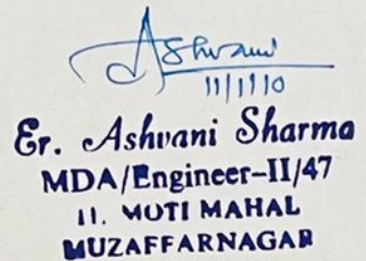 Ashvani
11/1/10
Er. Ashvani Sharma
MDA/Engineer-II/47
11, MOTI MAHAL
MUZAFFARNAGAR